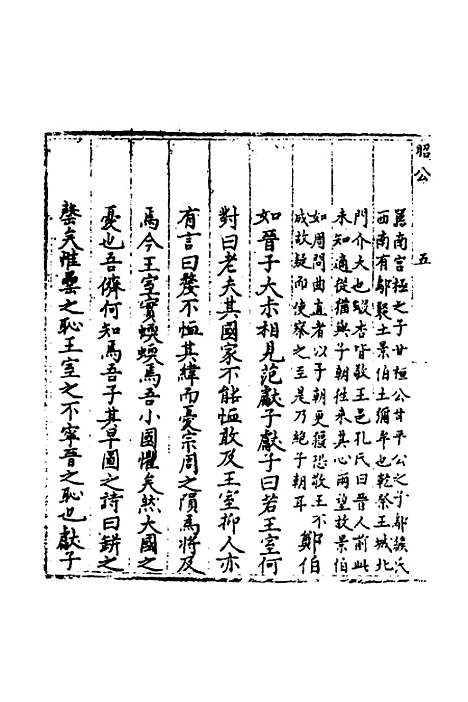 昭公
五
嚚南宫極之子甘桓公甘平公之子鄔緱氏
西南有鄔聚士景伯士彌牟也乾祭王城北
門介大也瑕杏皆敬王邑孔氏曰晉人前此
未知適從猶與子朝往來其心兩望故景伯
如周問曲直者以子朝更獲恐敬王不
成故疑而使察之至是乃絶子朝耳
鄭伯
如晉子大术相見范獻子獻子曰若王室何
對曰老夫其國家不能恤敢及王室抑人亦
有言曰嫠不恤其緯而憂宗周之隕焉將及
焉今王室實蝡蝡焉吾小國懼矣然大國之
憂也吾儕何知焉吾子其早圖之詩曰缾之
罄矣惟罍之恥王室之不寧晉之恥也獻子